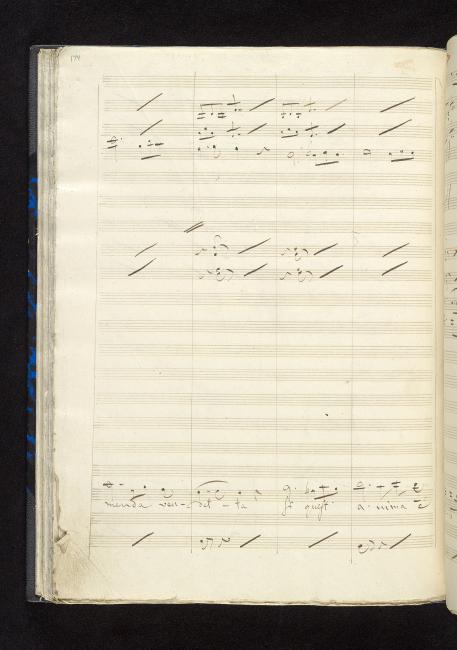 174
menda ven- det - ta quest' a - nima è